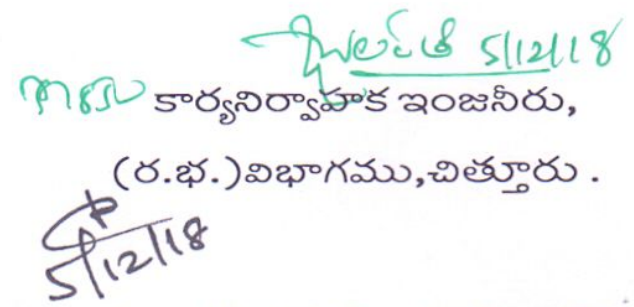 5/12/18
కార్యనిర్వాహక ఇంజనీరు,
(ర.భ.)విభాగము,చిత్తూరు .
5/12/18